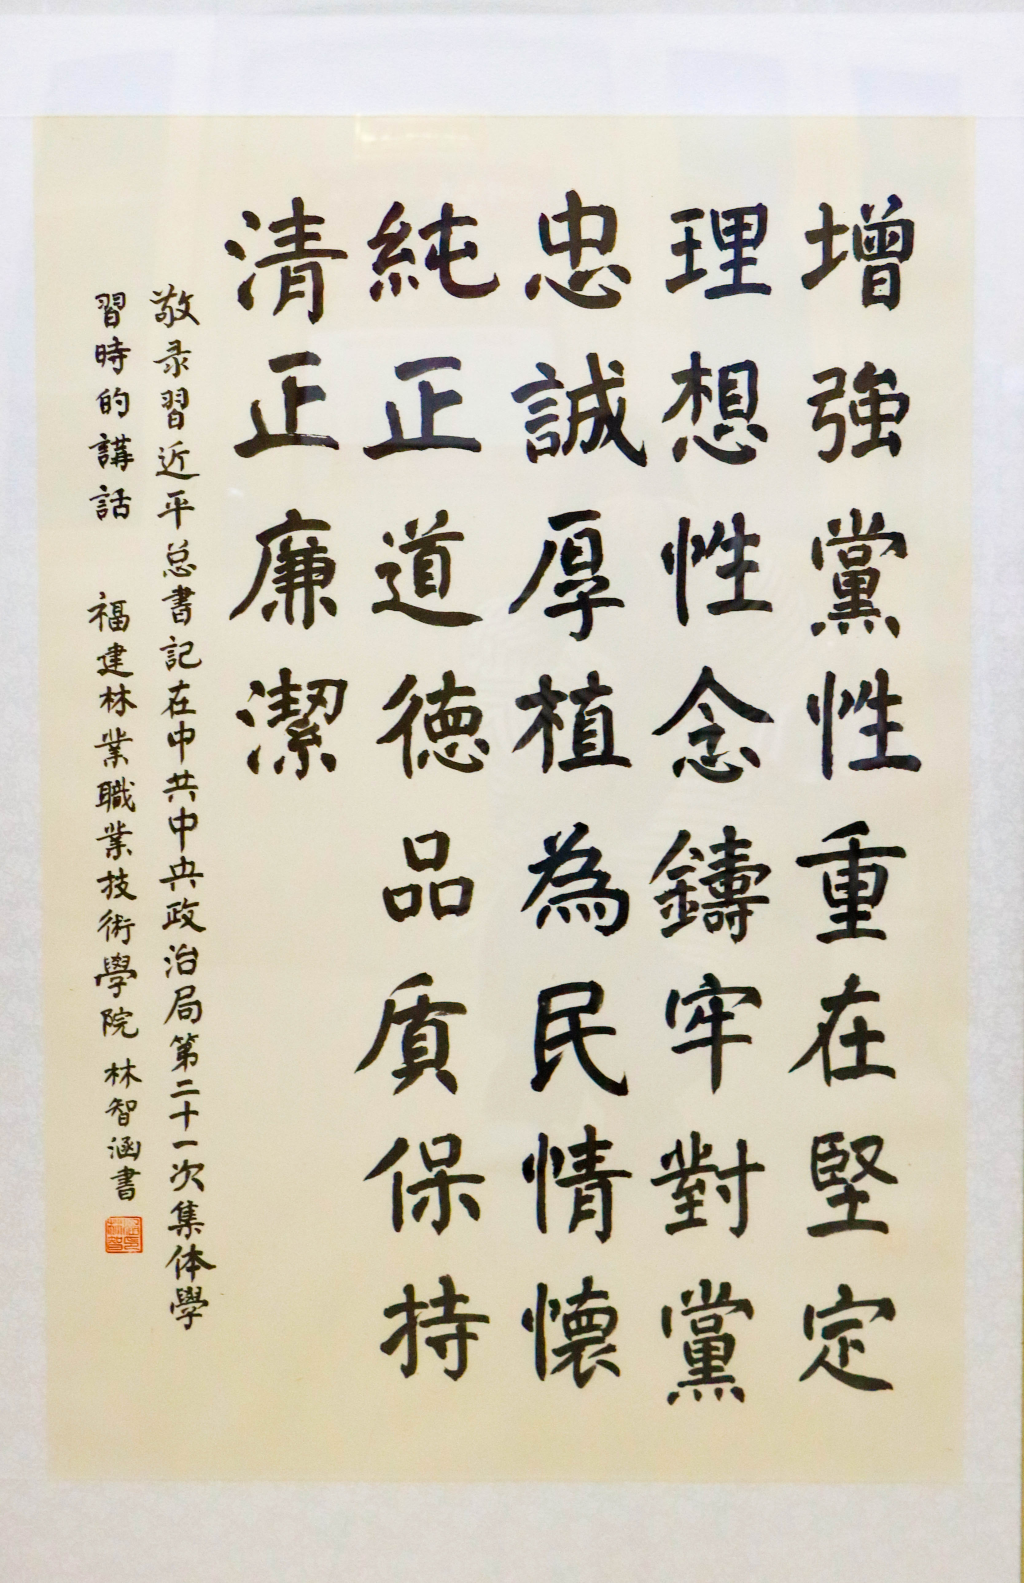 增強黨性重在堅定
理想性念鑄牢對黨
忠誠厚植為民情懷
純正道德品质保持
清正廉潔
敬录習近平总書記在中共中央政治局第二十一次集体學
習時的講話 福建林業職業技術學院 林智涵書